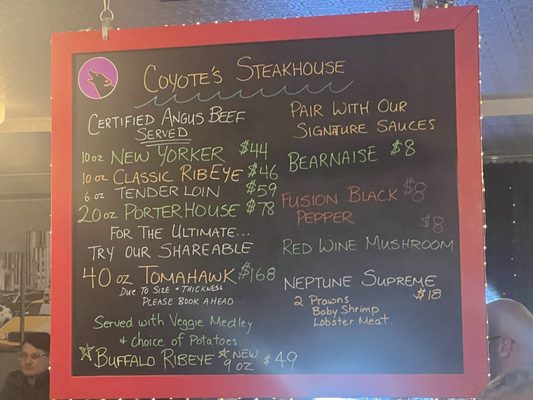 COYOTE'S STEAKHOUSE
CERTIFIED ANGUS BEEF
SERVED
10 oz NEW YORKER $44
10 oz CLASSIC RIBEYE $46
6 oz TENDERLOIN $59
20 oz PORTERHOUSE $78
FOR THE ULTIMATE...
TRY OUR SHAREABLE
40 oz TOMAHAWK $168
DUE TO SIZE + THICKNESS
PLEASE BOOK AHEAD...
Served with Veggie Medley
+ choice of Potatoes
BUFFALO RIBEYE NEW 9 oz $49
PAIR WITH OUR
SIGNATURE SAUCES
BEARNAISE $8
FUSION BLACK $8
PEPPER
$8
RED WINE MUSHROOM
NEPTUNE SUPREME
$18
2 Prawns
Baby Shrimp
Lobster Meat